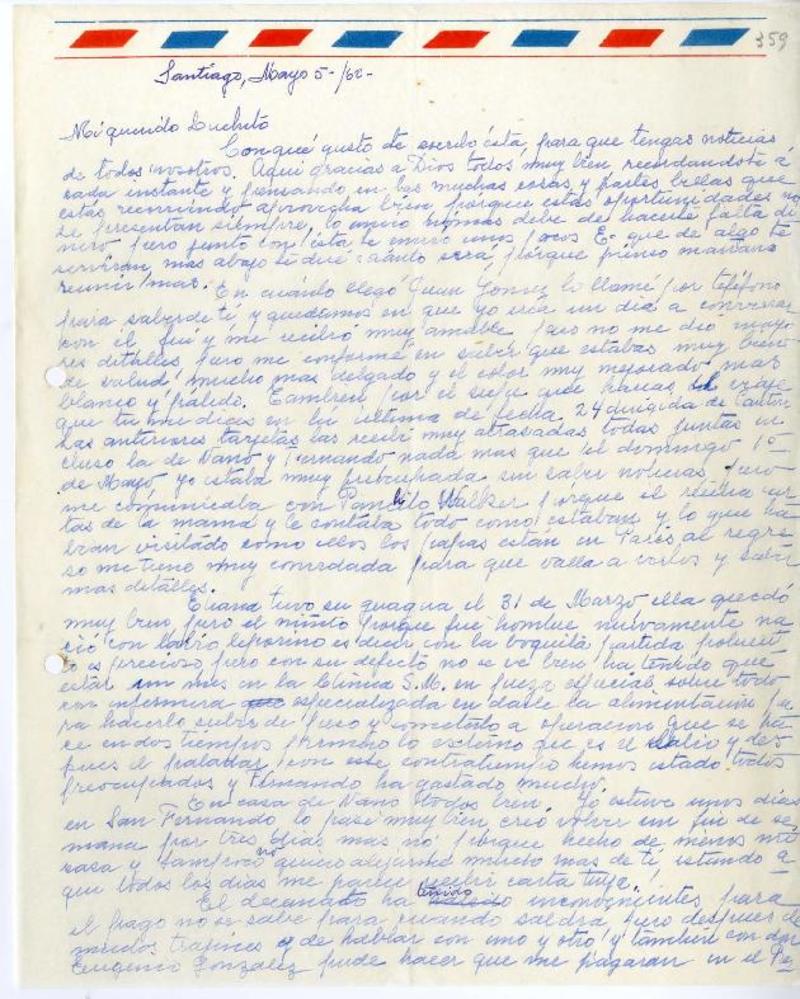 359
Santiago, Mayo 5-/62-
Mi querido Luchito
Con qué gusto te escribo ésta, para que tengas noticias
de todos nosotros. Aquí gracias a Dios todos muy bien recordandote á
cada instante y pensando en las muchas cosas y partes bellas que
estás recorriendo aprovecha bien porque estas oportunidades no
se presentan siempre, lo único debe de hacerte falta di
nero pero junto con ésta te envío unos pocos E- que de algo te
serviran, mas abajo te diré cuánto será, porque pienso mañana
reunir mas.
En cuánto llegó Juan Gomez lo llamé por teléfono
para saber de tí, y quedamos en que yo iría un día a conversar
con él fuí y me recibió muy amable pero no me dió mayo
res detalles pero me conformé en saber que estabas muy bien
de salud mucho mas delgado y el color muy mejorado mas
blanco y pálido. Tambien por él supe que harías el viaje
que tu me dices en tu última de fecha 24 dirigida de Canton
Las anteriores tarjetas las recibí muy atrasadas todas juntas in
cluso la de Nano y Fernando nada mas que el domingo 1º
de Mayo yo estaba muy preocupada sin saber noticias, pero
me comunicaba con Panchito Walker porque él recibía car
tas de la mamá y le contaba todo como estaban y lo que ha
bían visitado como ellos los papas estan en Paris al regre
so me tiene muy convidada para que valla a verlos y saber
mas detalles.
Eliana tuvo su guagua el 31 de Marzo ella quedó
muy bien, pero el niñito porque fue hombre nuevamente na
ció con labio leporino es decir con la boquita partida,
es precioso, pero con su defecto no se ve bien, ha tenido que
estar un mes en la Clínica S.M. en pieza especial sobre todo
con enfermera especializada en darle la alimentación pa
ra hacerlo subir de peso y someterlo a operacion que se ha
ce en dos tiempos primero lo externo que es el labio y des
pues el paladar, con este contratiempo hemos estado todos
preocupados y Fernando ha gastado mucho.
En casa de Nano todos bien. Yo estuve unos días
en San Fernando lo pasé muy bien creo volver un fin de se
mana por tres días mas nó porque hecho de menos mi
casa y tampoco no quiero alejarme mucho mas de tí, estando a
quí todos los días me parece recibir carta tuya!
El decanato ha tenido inconvenientes para
el pago no se sabe para cuando saldrá, pero despues de
muchos trajines y de hablar con uno y otro y tambien con don
Eugenio Gonzalez pude hacer que me pagaran en el Pe